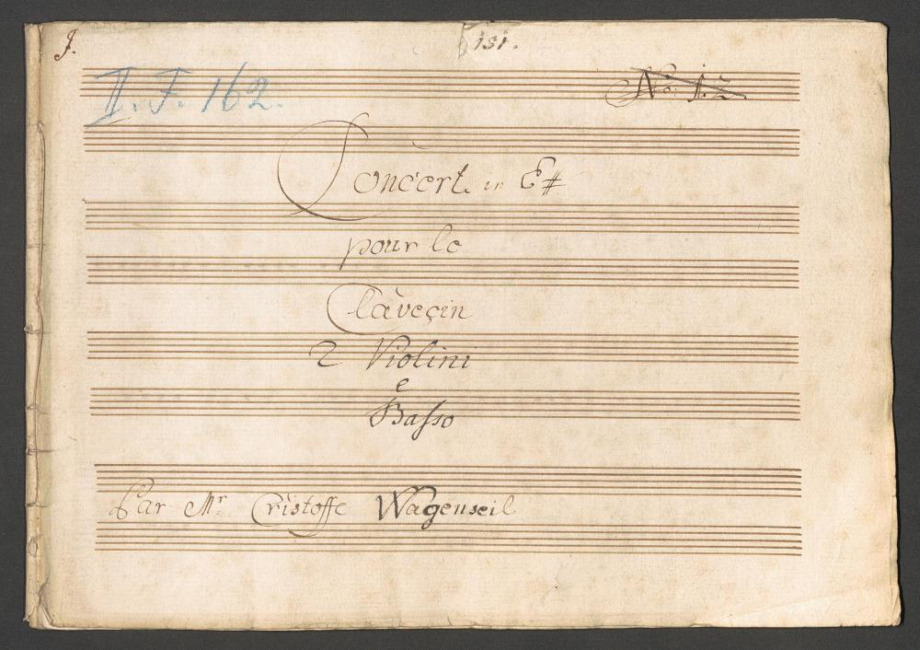 J.
151.
II. F. 162.
No. 12
Concert. in E#
pour le
Claveçin
2 Violini
e
Basso
Par Mr. Cristoffe Wagenseil